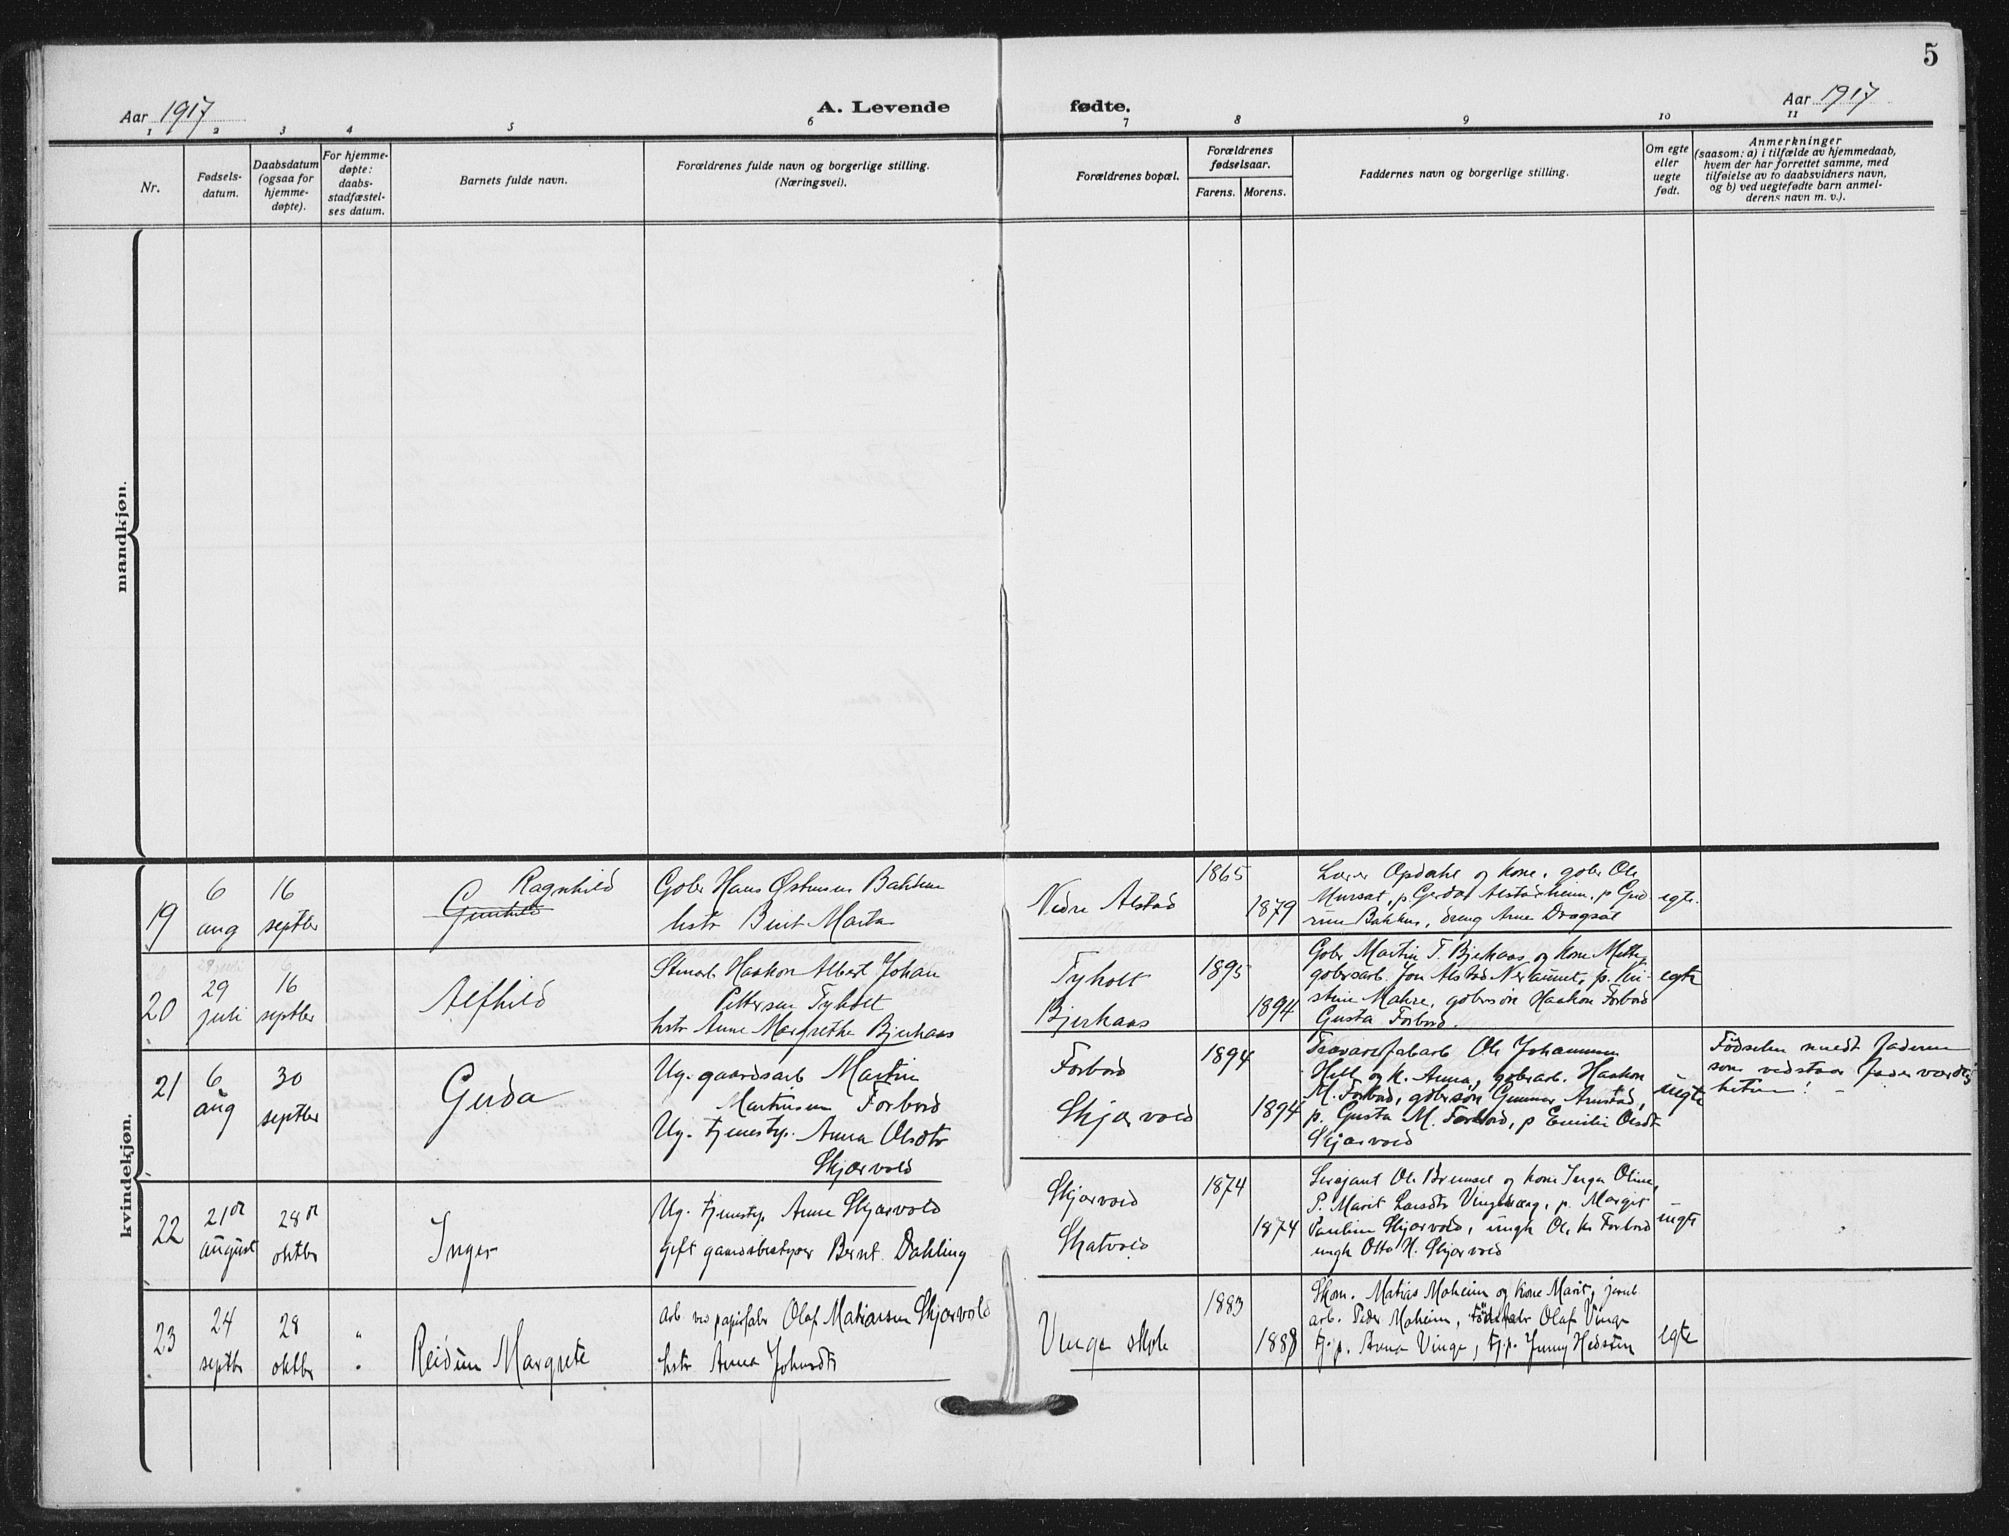 5
Aar 1917
A. Levende fødte.
Aar 1917
1 2 3 4 5 6 7 8 9 10 11
Nr.
Fødsels-
datum.
Daabsdatum
(ogsaa for
hjemme-
døpte).
For hjemme-
døpte:
daabs-
stadfæstel-
ses datum.
Barnets fulde navn.
Forældrenes fulde navn og borgerlige stilling.
(Næringsvei).
Forældrenes bopæl.
Forældrenes
fødselsaar.
Farens. Morens.
Faddernes navn og borgerlige stilling.
Om egte
eller
uegte
født.
Anmerkninger
(saasom: a) i tilfælde av hjemmedaab,
hvem der har forrettet samme, med
tilføielse av to daabsvidners navn,
og b) ved uegtefødte barn anmel-
derens navn m. v.).
mandkjøn.
kvindekjøn.
19
6
aug
16
septbr
Ragnhild
Gunhild
Gbr Hans Østensen Bakken
hstr Berit Marta
Nedre Alstad
1865
1879
Lærer Opdahl og kone, gbr Ole
Mursat, p. Gerda Alstadheim, p Gud
run Bakken, dreng Arne Dragsåt
egte
20
29
juli
16
septbr
Alfhild
Stenarb Haakon Albert Johan
Pettersen Tyholt
hstr Anne Margrethe Bjerkaas
Tyholt
Bjerkaas
1895
1894
Gbr Martin T. Bjerkaas og kone Mette,
gbrsarb. Jon Alstad Nertunet, p. Kri-
stine Mahre, gbrsøn Haakon Forbord
Gusta Forbord.
egte
21
6
aug
30
septbr
Gerda
Ug. gaardsarb Martin
Martinsen Forbord
Ug. tjenestp. Anna Olsdtr
Skjærvold
Forbord
Skjærvold
1894
1894
Trævarefabarb Ole Johannesen
Hell og k. Anna, gbrarb. Haakon
M. Forbord, gbrsøn Gunnar Arnstad,
p. Gusta M. Forbord, p Emilie Olsdtr
Skjærvold
uegte
Fødselen meldt faderen
som vedstaar faderværdig
heten! -
22
21de
august
28de
oktbr
Inger
Ug. tjenestp. Anne Skjærvold
Gift gaardsbestyrer Bernt Dahling
Skjærvold
Skatvold
1874
1874
Sersjant Ole Bremset og kone Inger Oline,
P. Marit Larsdtr Vingehaug, p. Margit
Pauline Skjærvold, ungk Ole Kr Forbord
ungk Otto H. Skjærvold
uegte
23
24
septbr
28
oktbr
"
"
Reidun Margrete
arb. ved papirfabr Olaf Matiassen Skjærvold
hstr Anna Johnsdtr
Vinge skole
1883
1888
Skom. Matias Moheim og kone Marit, jernb
arb. Peder Moheim, Olaf Vinge
tj.p. Anna Vinge, tj.p. Jenny Hedsten
egte